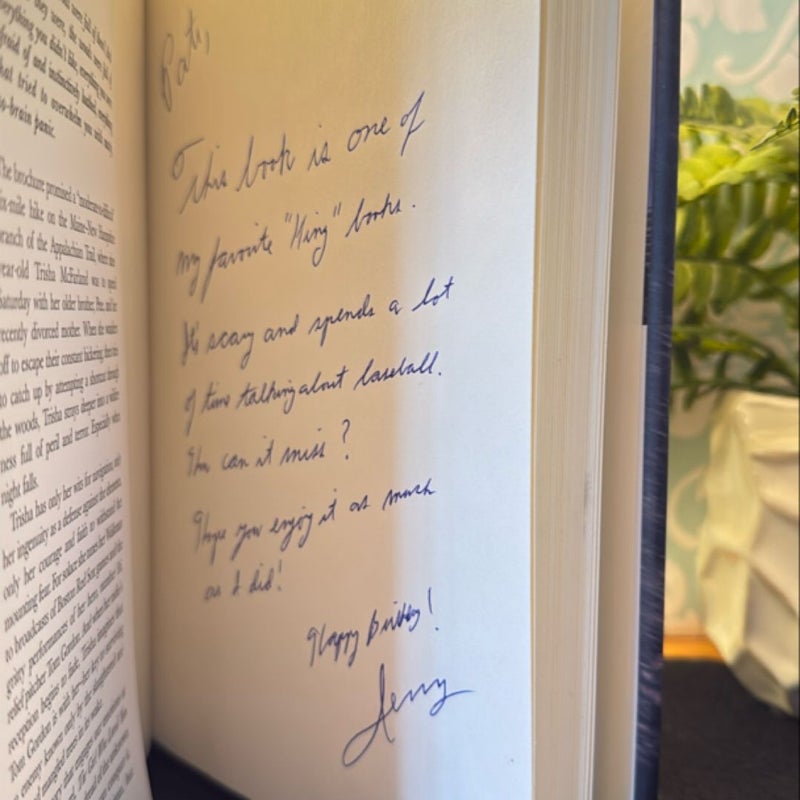 everything you didn't like, everything you were
afraid of and instinctively loathed, everything
that tried to overwhelm you with nasty,
no-brain panic.
The brochure promised a "moderate-to-difficult"
six-mile hike on the Maine-New Hampshire
branch of the Appalachian Trail, where nine-
year-old Trisha McFarland was to spend
Saturday with her older brother, Pete, and her
recently divorced mother. When she wanders
off to escape their constant bickering, then tries
to catch up by attempting a shortcut through
the woods, Trisha strays deeper into a wilder-
ness full of peril and terror. Especially when
night falls.
Trisha has only her wits for navigation, only
her ingenuity as a defense against the elements,
only her courage and faith to withstand her
mounting fear. For solace she tunes her Walkman
to broadcasts of Boston Red Sox games and the
gritty performances of her hero, number 36,
relief pitcher Tom Gordon. And when her radio's
reception begins to fade, Trisha imagines that
Tom Gordon is with her
Pat,
This book is one of
my favorite "King" books.
It's scary and spends a lot
of time talking about baseball.
How can it miss?
I hope you enjoy it as much
as I did!
Happy birthday!
Jerry